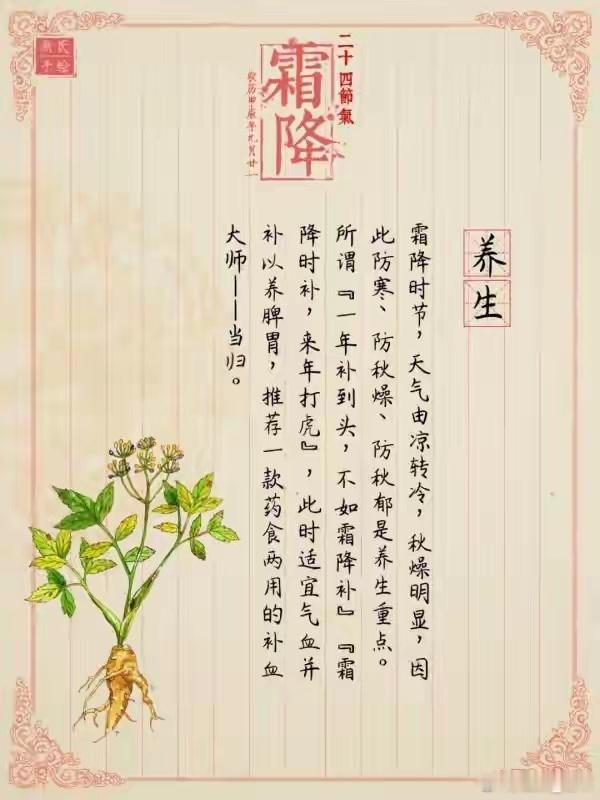 二十四節氣
霜降
养生
霜降时节，天气由凉转冷，秋燥明显，因
此防寒、防秋燥、防秋郁是养生重点。
所谓『一年补到头，不如霜降补』『霜
降时补，来年打虎』，此时适宜气血并
补以养脾胃，推荐一款药食两用的补血
大师——当归。